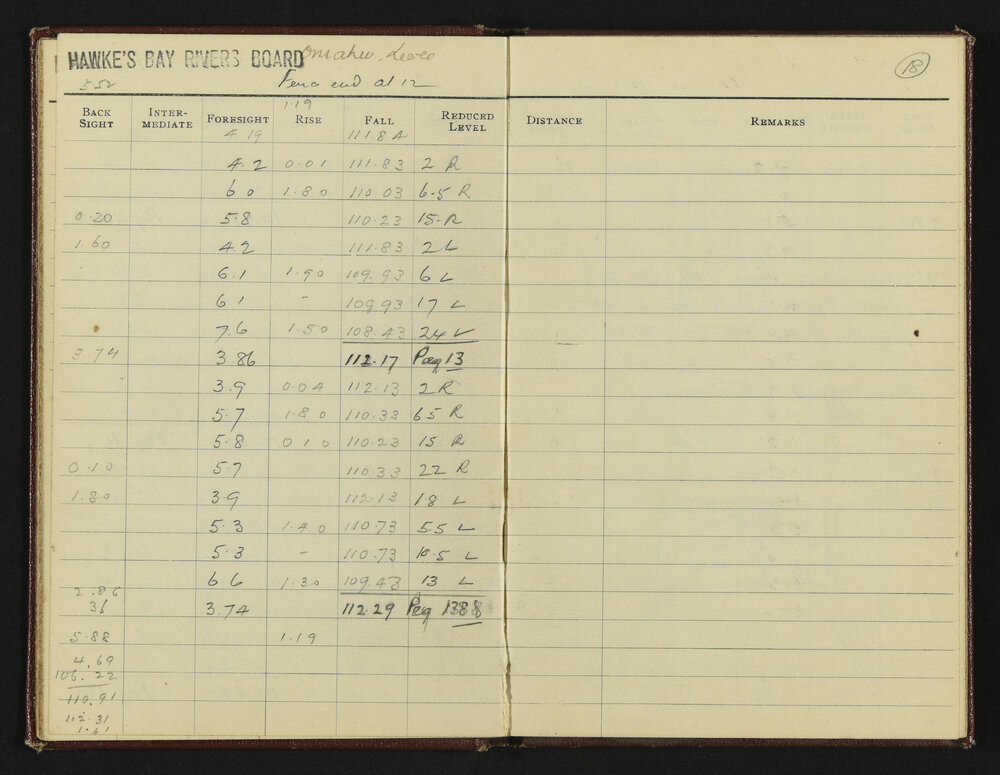 HAWKE'S BAY RIVERS BOARD Omahu Levee
18
5.52 Fence end at 12
1.19
BACK SIGHT INTER-MEDIATE FORESIGHT RISE FALL REDUCED LEVEL DISTANCE REMARKS
4.19 111.84
4.2 0.01 111.83 2 R
6 0 1.80 110.03 6.5 R
0.20 5.8 110.23 15 R
1.60 4.2 111.83 2 L
6.1 1.90 109.93 6 L
6 1 - 109.93 17 L
7.6 1.50 108.43 24 L
3 74 3.86 112.17 Peg 13
3.9 0.04 112.13 2 R
5.7 1.80 110.33 6.5 R
5.8 0 1 0 110.23 15 R
0.10 5.7 110.33 22 R
1.80 3.9 112.13 1.8 L
5.3 1.40 110.73 5.5 L
5.3 - 110.73 10.5 L
6 6 1.30 109.43 13 L
2.86
36 3.74 112.29 Peg 1388
5.88 1.19
4.69
106.22
110.91
112.31